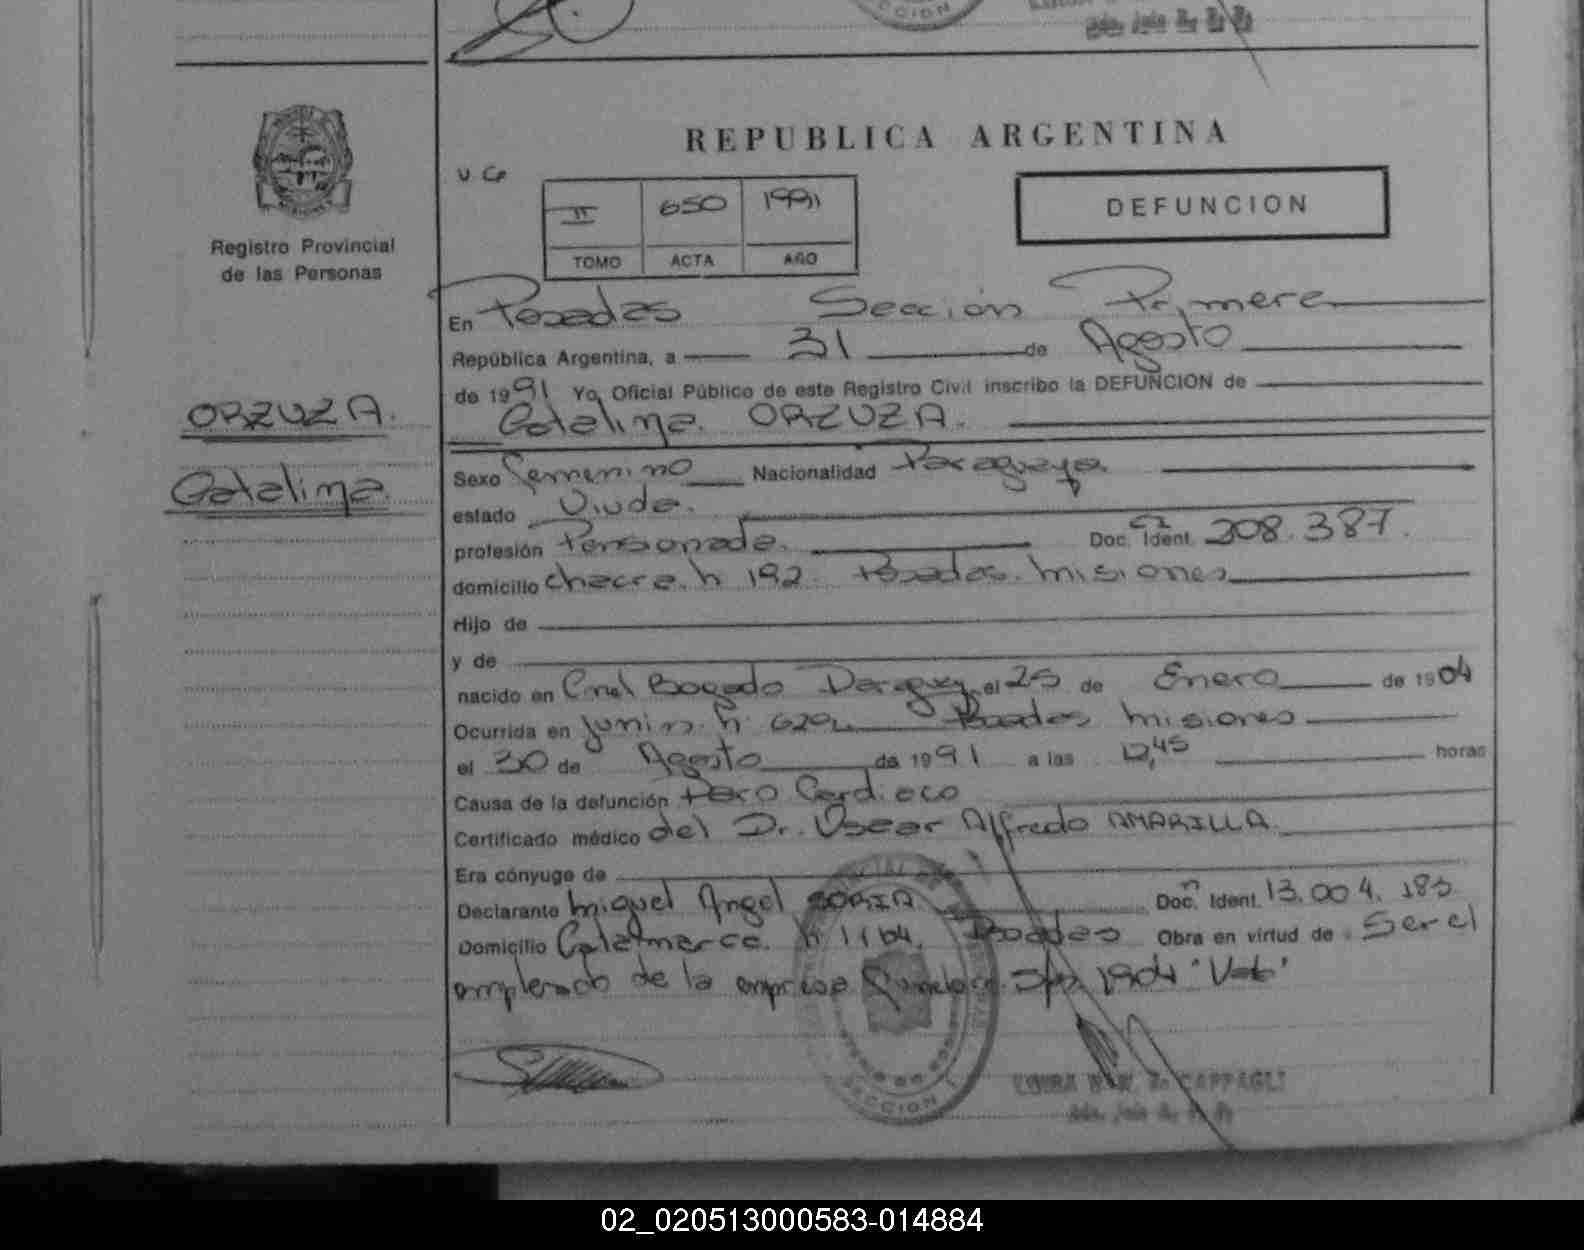 REPUBLICA ARGENTINA
DEFUNCION
II 650 1991
TOMO ACTA AÑO
Registro Provincial
de las Personas
ORZUZA.
Catalina
En Posadas Sección Primera
República Argentina, a 31 de Agosto
de 1991 Yo, Oficial Público de este Registro Civil inscribo la DEFUNCION de
Catalina ORZUZA.
Sexo femenino Nacionalidad Paraguaya
estado Viuda.
profesión Pensionada. Doc. Ident. 208.387.
domicilio chacra. n 192. Posadas. misiones
Hijo de
y de
nacido en Cnel Bogado Paraguay el 25 de Enero de 1904
Ocurrida en Junin n Posadas misiones
el 30 de Agosto de 1991 a las 12,45 horas
Causa de la defunción Paro Cardiaco
Certificado médico del Dr. Oscar Alfredo AMARILLA.
Era cónyuge de
Declarante Miguel Angel SORIA Doc. Ident. 13.004.183
Domicilio Catamarca. n 1164. Posadas Obra en virtud de Ser el
empleado de la empresa
SECCION 1
CAPPAGLI
02_020513000583-014884